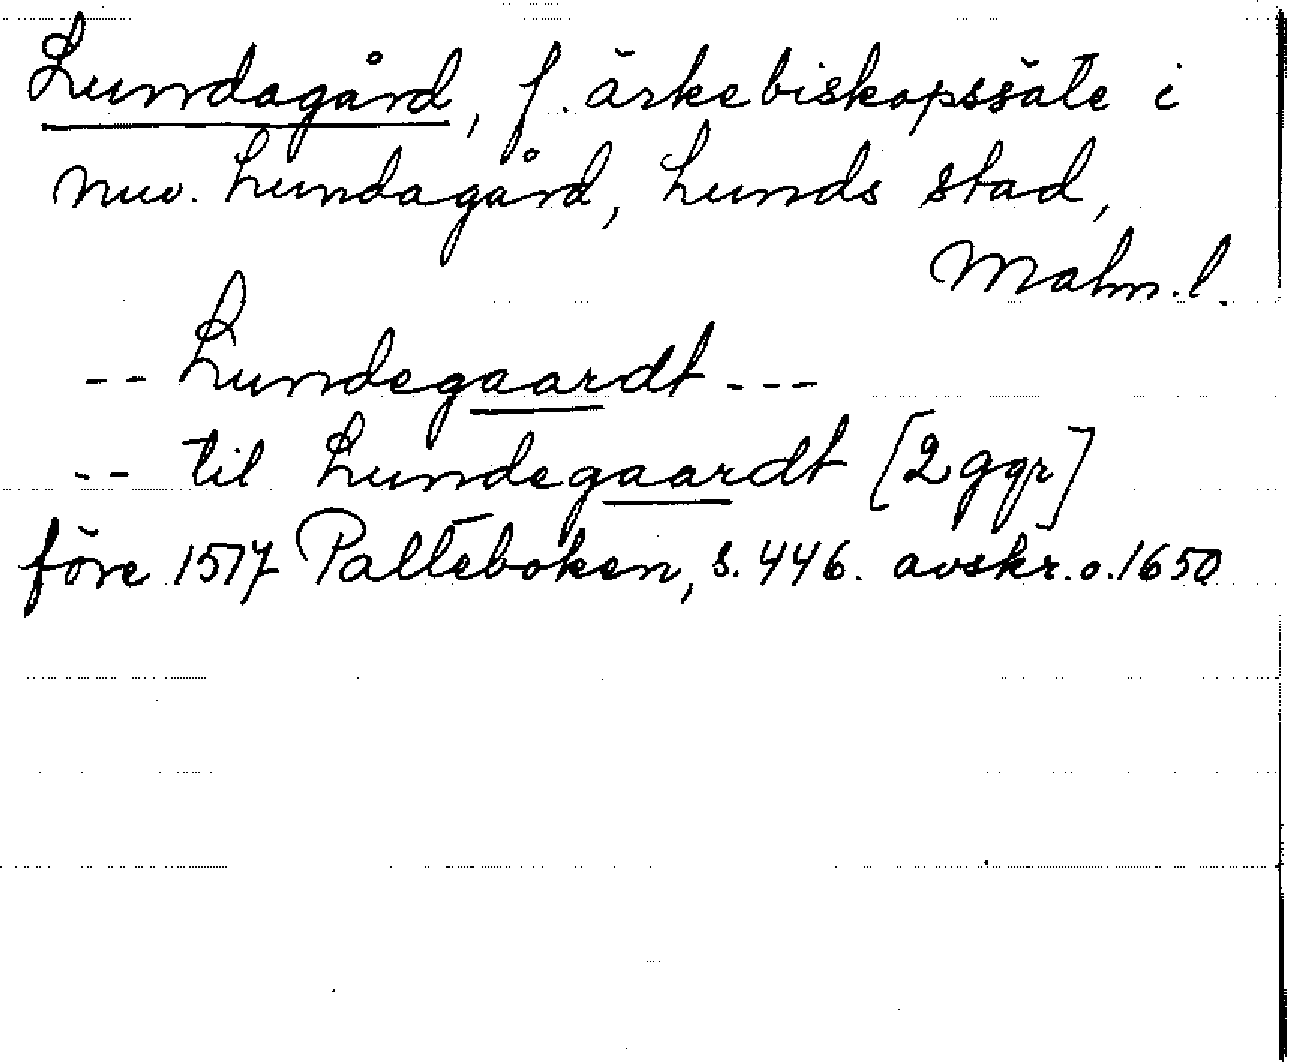 Lundagård, f. ärkebiskopssäte i
nuv. Lundagård, Lunds stad,
Malm. l.
-- Lundegaardt ---
-- til Lundegaardt [2 ggr]
före 1517 Palteboken, s. 446. avskr. o. 1650